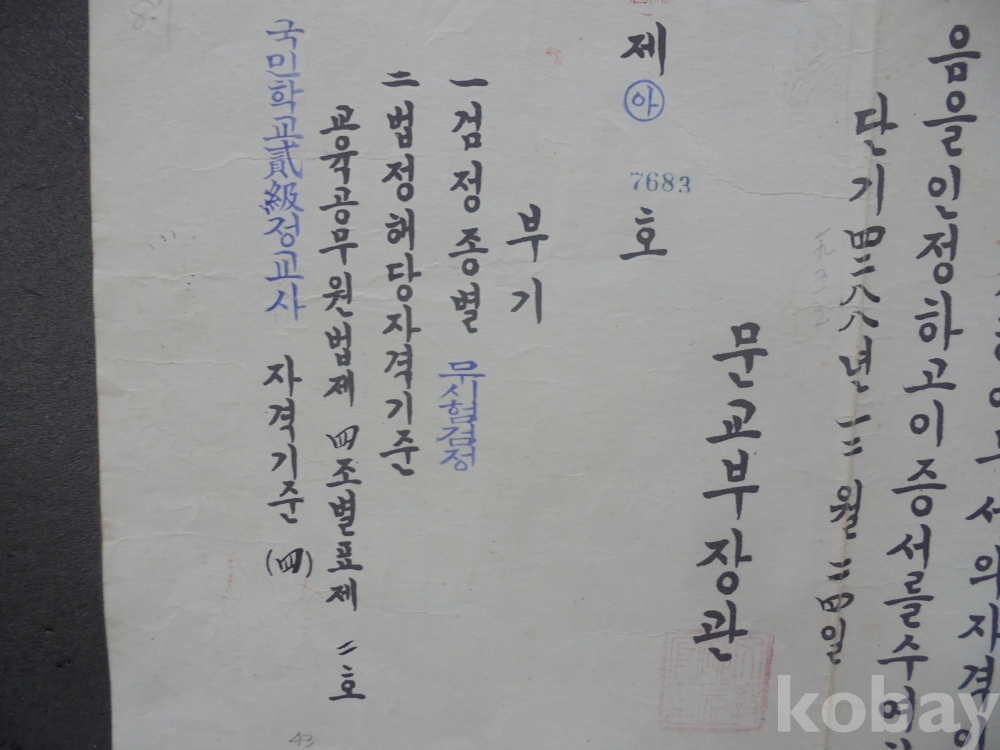 서의자격이
음을인정하고이증서를수여
단기四二八八년一二월二四일
문교부장관
제㉵ 7683 호
부기
一검정종별 무시험검정
二법정해당자격기준
교육공무원법제四조별표제二호
국민학교貳級정교사 자격기준(四)
43
kobay